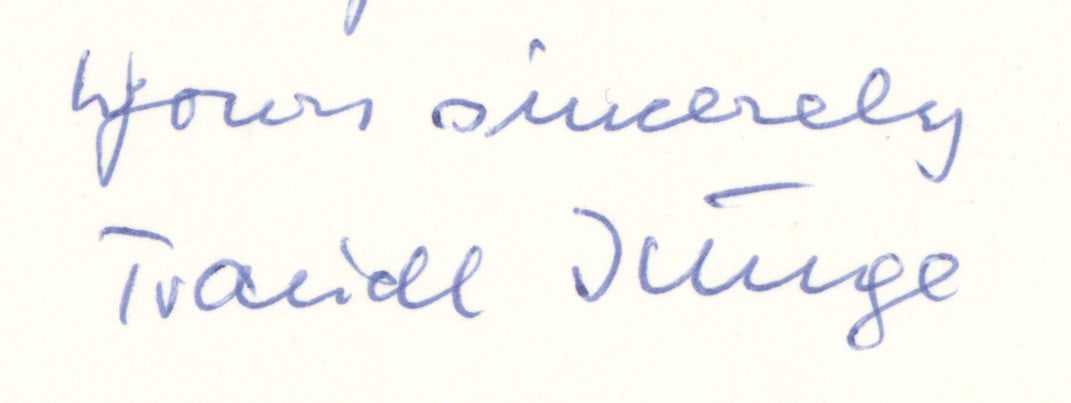 Yours sincerely
Traudl Junge